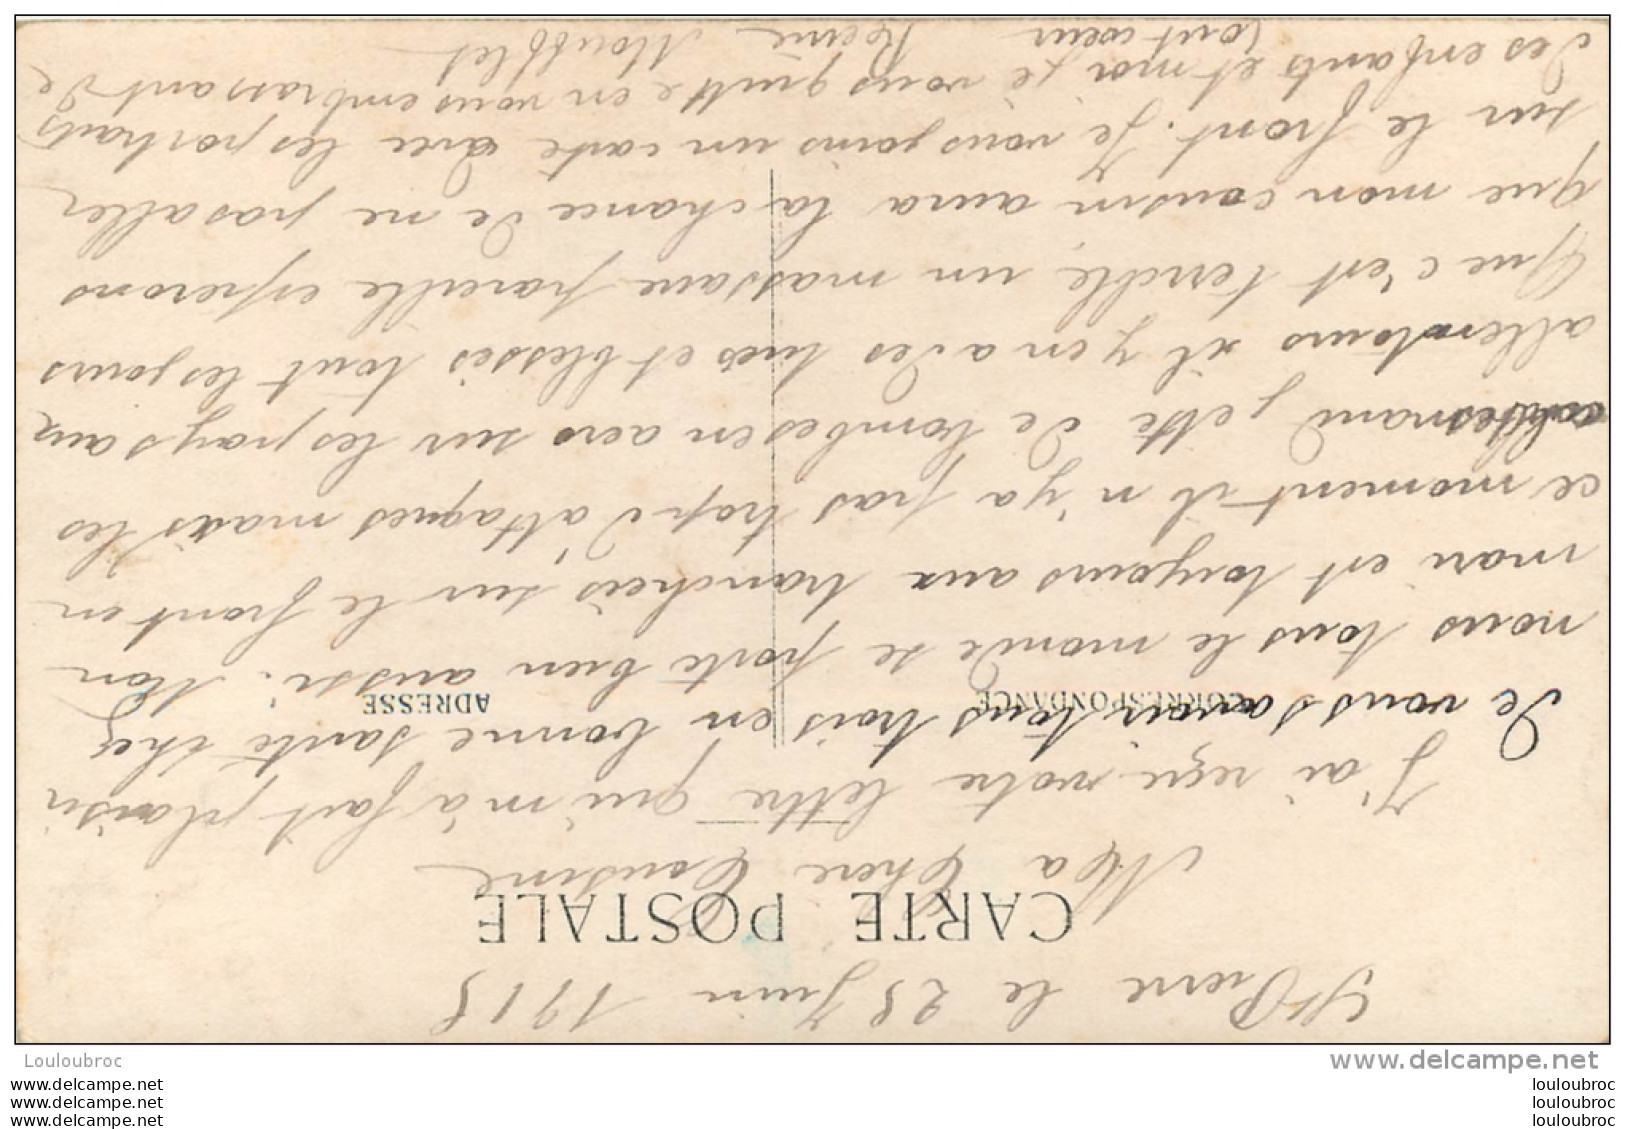 St Pierre le 25 Juin 1915
CARTE POSTALE
Ma Chere Cousine
J'ai reçu votre lettre qui m'à fait plaisir
CORRESPONDANCE
ADRESSE
de vous savoir tous trois en bonne santé chez
nous tous le monde se porte bien aussi. Mon
mari est toujours aux tranchées sur le front en
ce moment il n'ya pas trop d'attaques mais les
jette de bombes en aero sur les pays aux
allentours il y en a des tués et blessés tout les jours
que c'est terrible un massacre pareille esperons
que mon cousin aura la chance de ne pas aller
sur le front. Je vous joins un carte avec les portraits
des enfants et moi je vous quitte en vous embrassant de
tout cœur Reine
Louloubroc
www.delcampe.net
www.delcampe.net
www.delcampe.net
www.delcampe.net
louloubroc
louloubroc
louloubroc